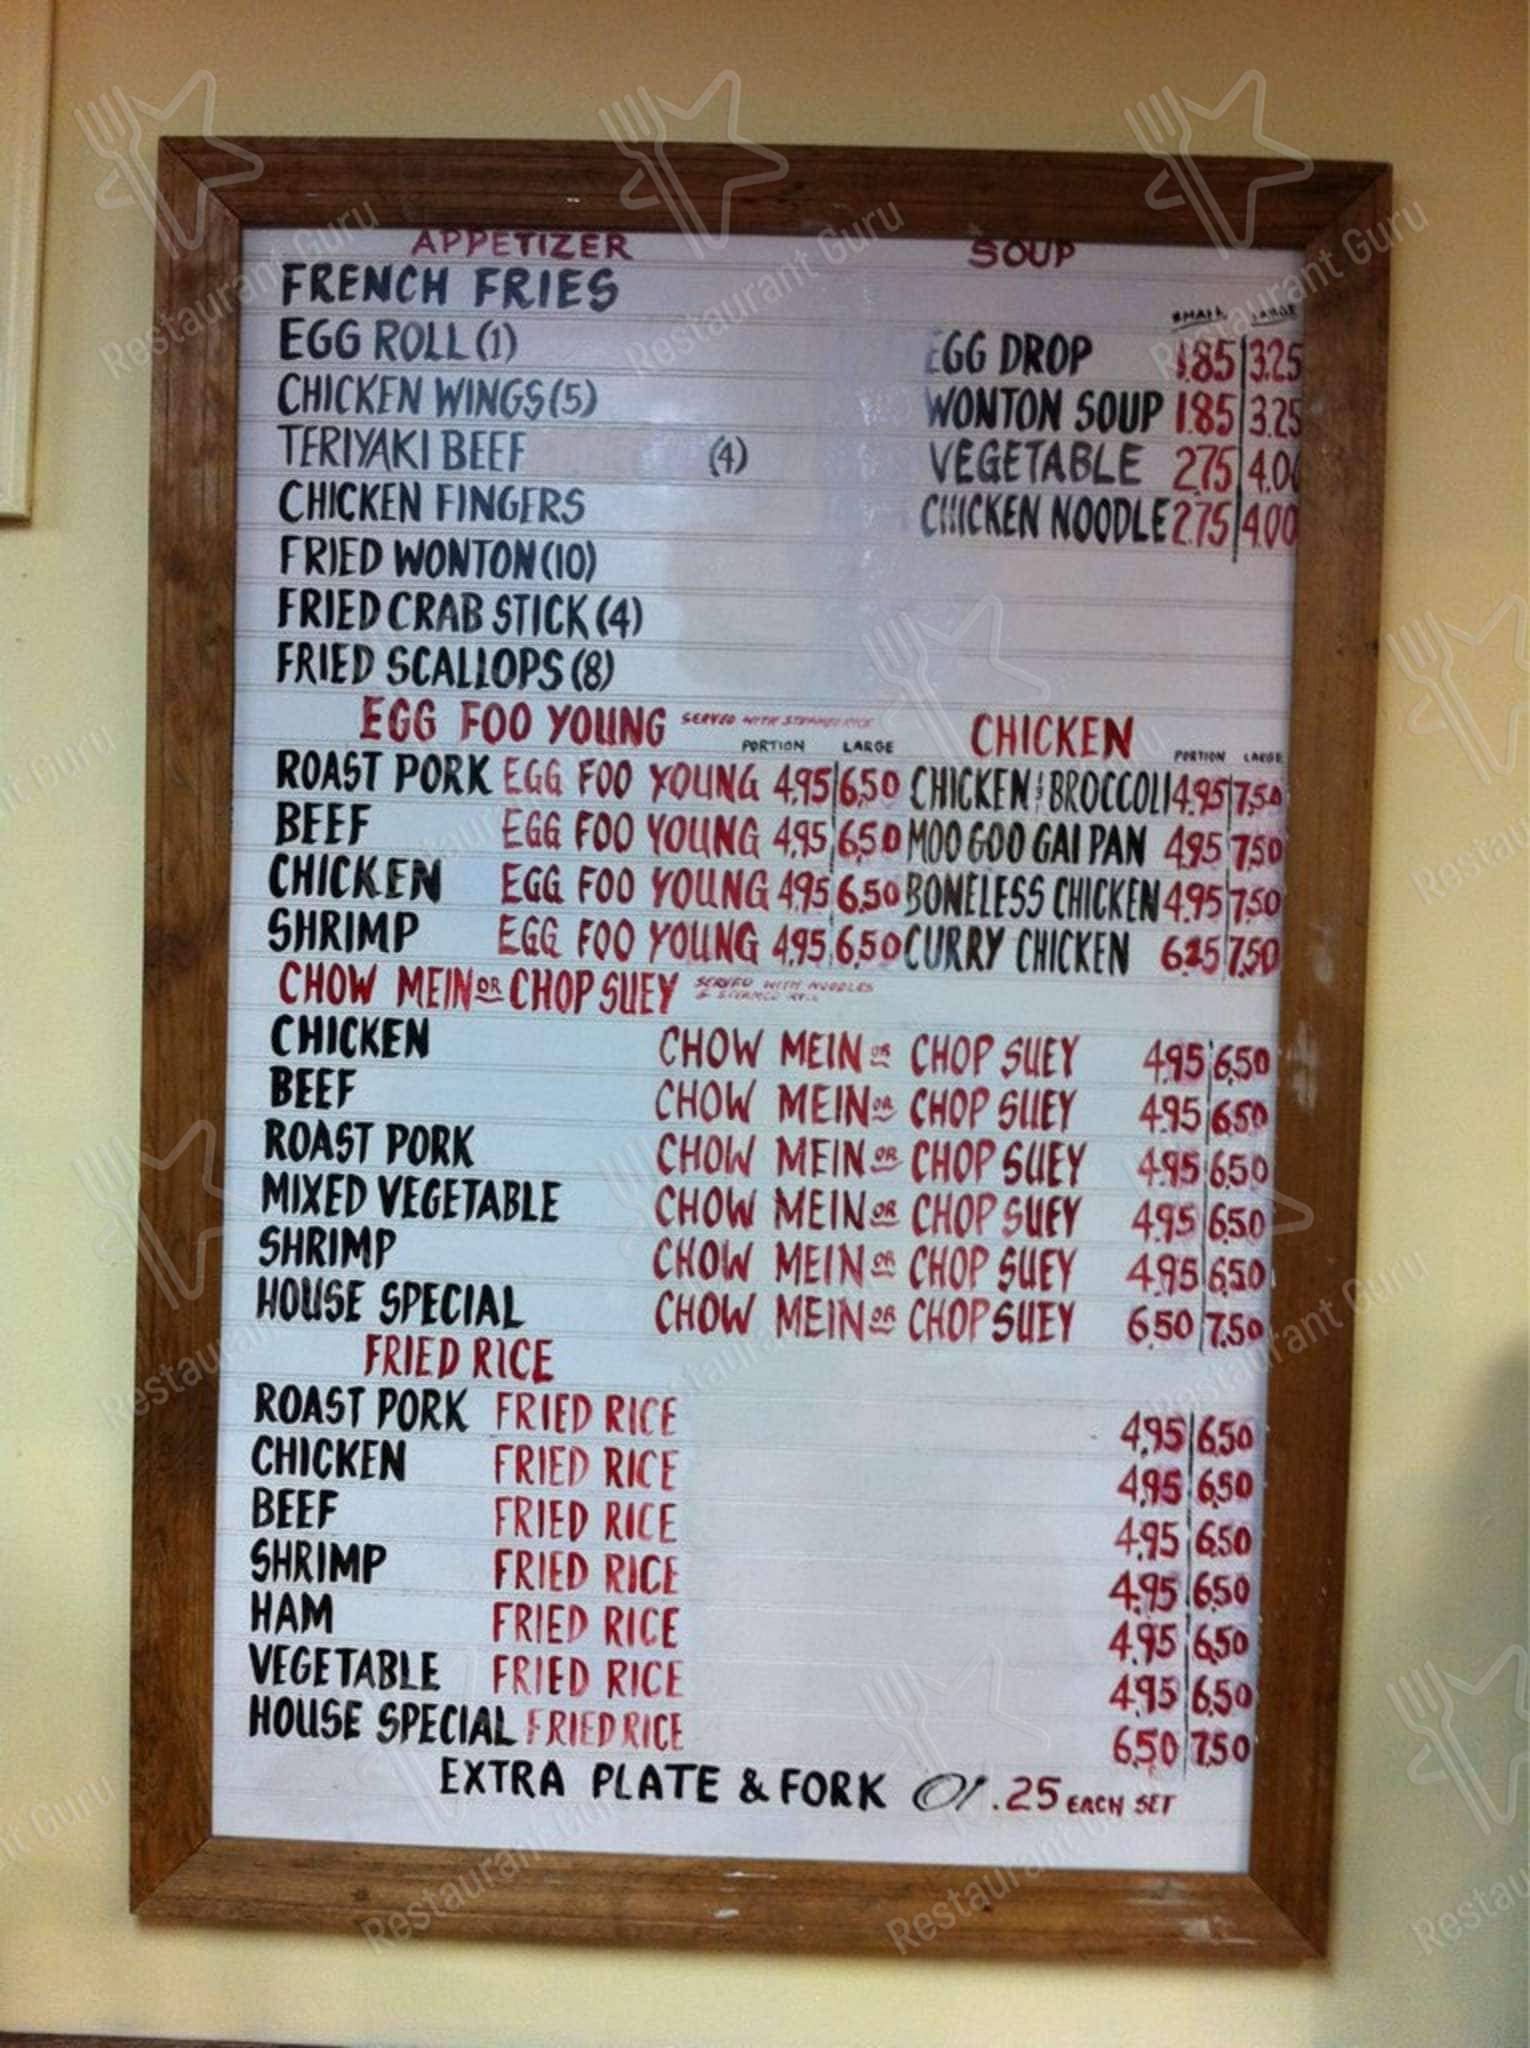 APPETIZER SOUP
FRENCH FRIES
SMALL LARGE
EGG ROLL (1) EGG DROP 1.85 3.25
CHICKEN WINGS (5) WONTON SOUP 1.85 3.25
TERIYAKI BEEF (4) VEGETABLE 2.75 4.00
CHICKEN FINGERS CHICKEN NOODLE 2.75 4.00
FRIED WONTON (10)
FRIED CRAB STICK (4)
FRIED SCALLOPS (8)
EGG FOO YOUNG SERVED WITH STEAMED RICE CHICKEN
PORTION LARGE PORTION LARGE
ROAST PORK EGG FOO YOUNG 4.95 6.50 CHICKEN & BROCCOLI 4.95 7.50
BEEF EGG FOO YOUNG 4.95 6.50 MOO GOO GAI PAN 4.95 7.50
CHICKEN EGG FOO YOUNG 4.95 6.50 BONELESS CHICKEN 4.95 7.50
SHRIMP EGG FOO YOUNG 4.95 6.50 CURRY CHICKEN 7.50
CHOW MEIN OR CHOP SUEY SERVED WITH NOODLES
& STEAMED RICE
CHICKEN CHOW MEIN OR CHOP SUEY 4.95 6.50
BEEF CHOW MEIN OR CHOP SUEY 4.95 6.50
ROAST PORK CHOW MEIN OR CHOP SUEY 4.95 6.50
MIXED VEGETABLE CHOW MEIN OR CHOP SUEY 4.95 6.50
SHRIMP CHOW MEIN OR CHOP SUEY 4.95 6.50
HOUSE SPECIAL CHOW MEIN OR CHOP SUEY 6.50 7.50
FRIED RICE
ROAST PORK FRIED RICE 4.95 6.50
CHICKEN FRIED RICE 4.95 6.50
BEEF FRIED RICE 4.95 6.50
SHRIMP FRIED RICE 4.95 6.50
HAM FRIED RICE 4.95 6.50
VEGETABLE FRIED RICE 4.95 6.50
HOUSE SPECIAL FRIED RICE 6.50 7.50
EXTRA PLATE & FORK .25 EACH SET
Restaurant Guru